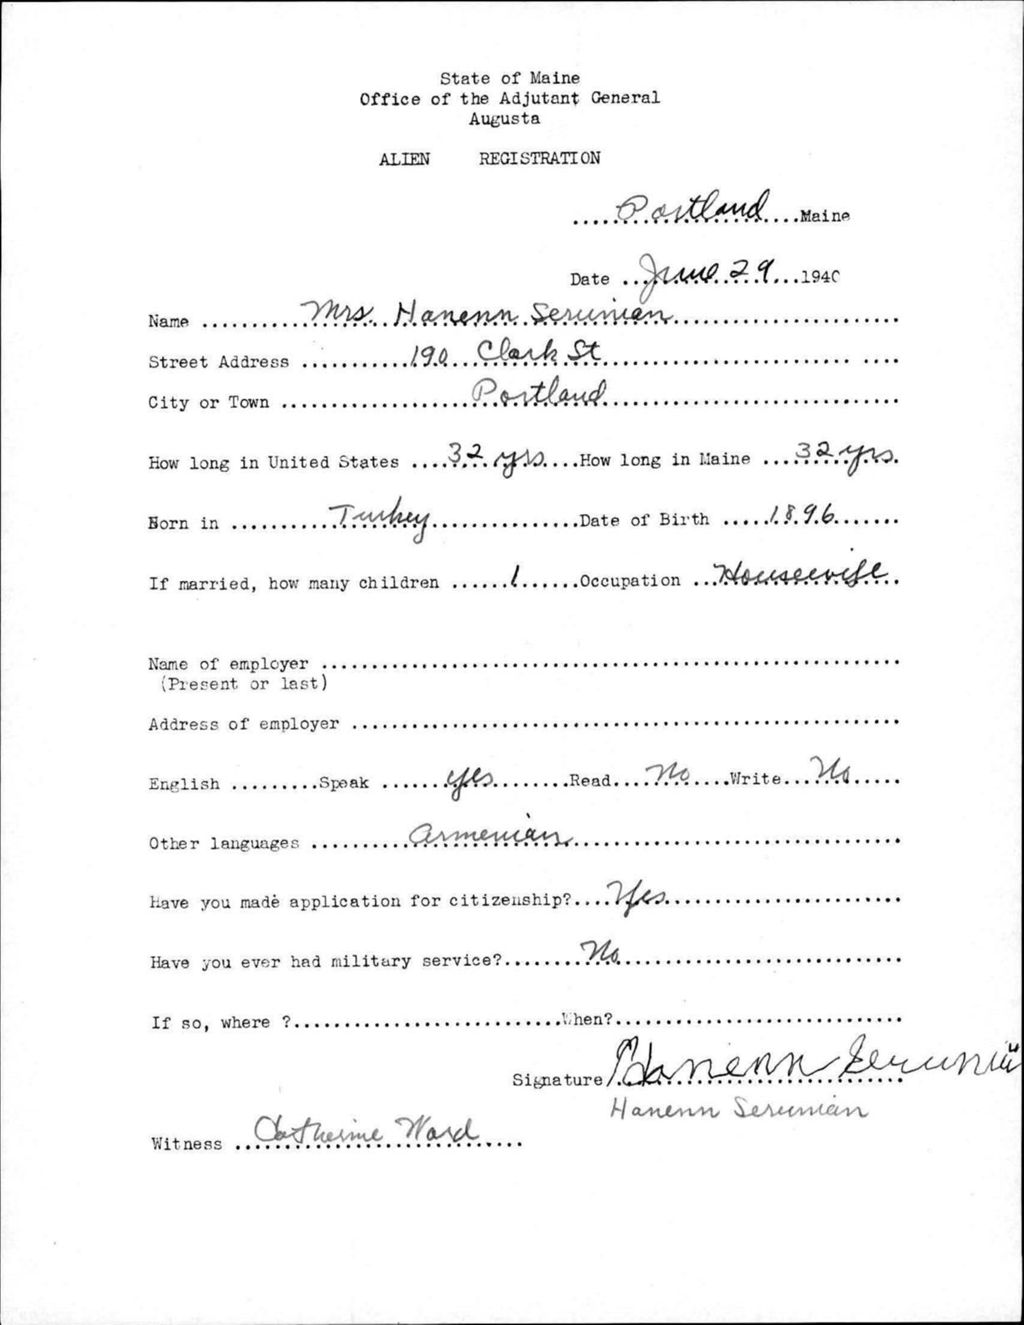 State of Maine
Office of the Adjutant General
Augusta
ALIEN REGISTRATION
.....Portland....Maine
Date ...June 29...1940
Name ...........Mrs. Hanenn Serunian.......................
Street Address ...........190 Clark St..............................
City or Town ...................Portland.............................
How long in United States ....32 yrs....How long in Maine ...32 yrs.
Born in ..........Turkey...............Date of Birth .....1896.......
If married, how many children ......1......Occupation ...Housewife..
Name of employer ..........................................................
(Present or last)
Address of employer .......................................................
English .........Speak .......yes........Read....No....Write...No.....
Other languages ..........Armenian.................................
Have you made application for citizenship?....Yes........................
Have you ever had military service?........No............................
If so, where ?...........................When?.............................
Signature Hanenn Serunian
Hanenn Serunian
Witness ..Catherine Ward....